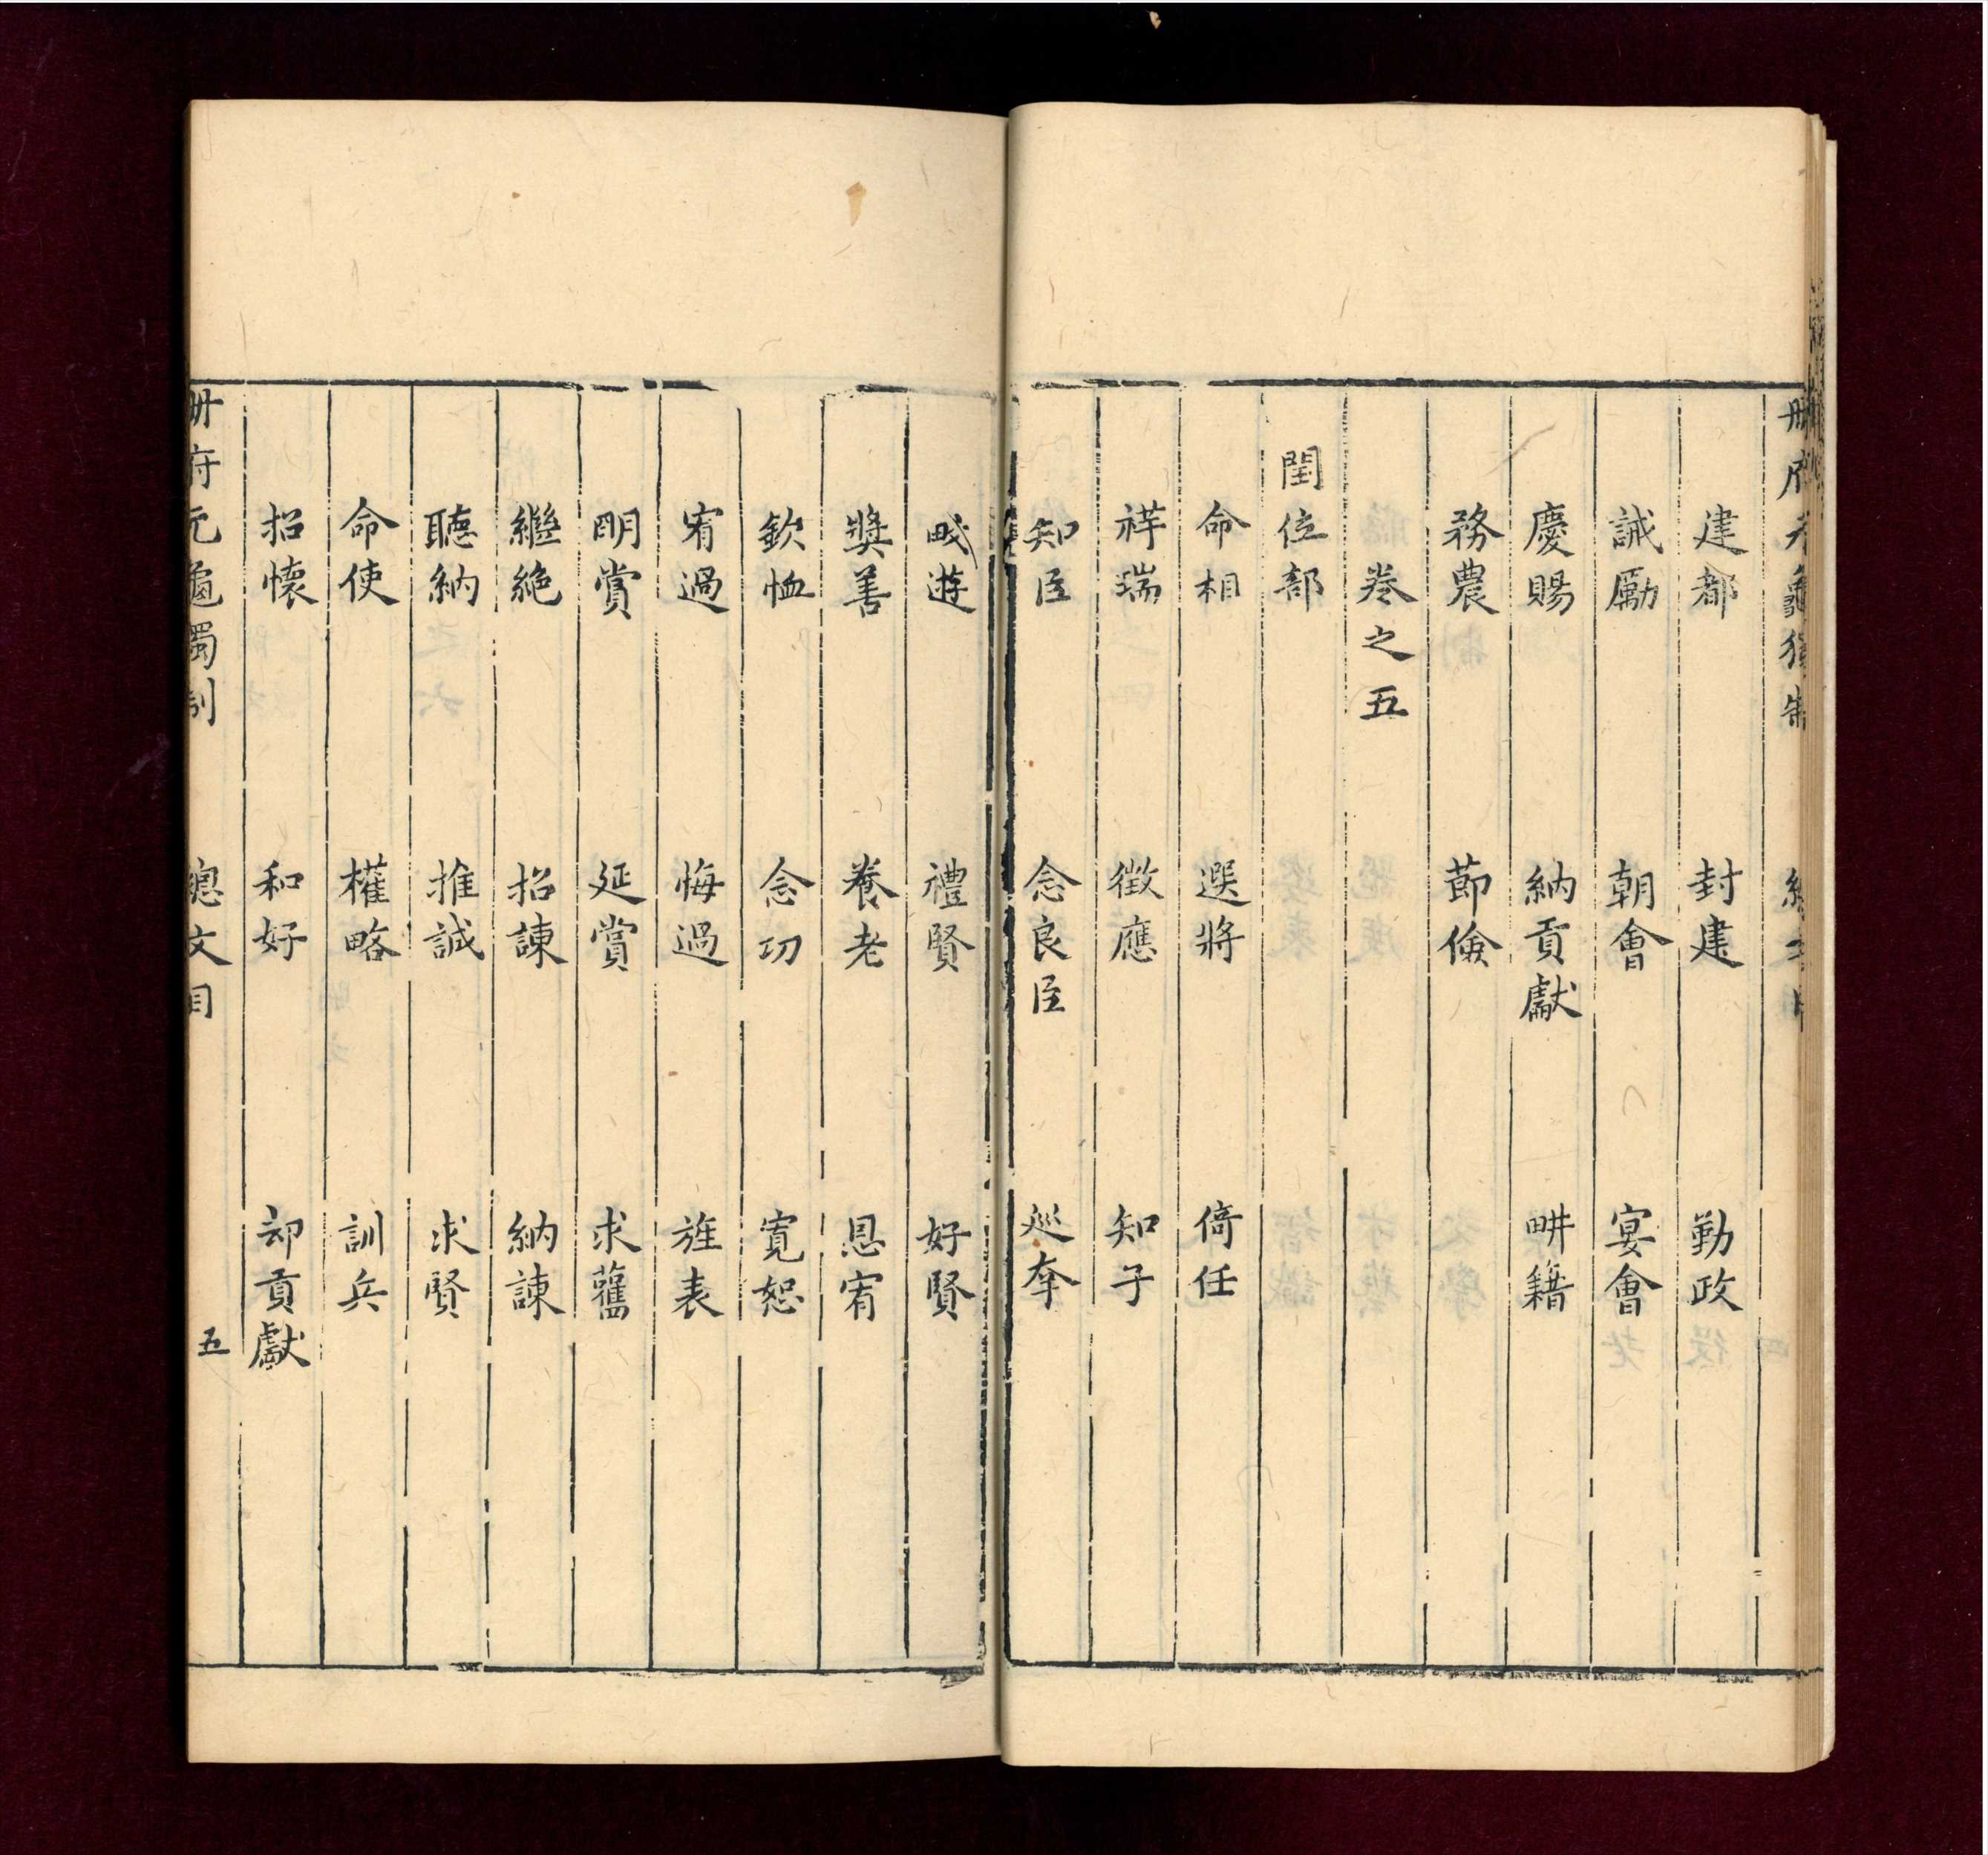 建都 封建 勤政
誡勵 朝會 宴會
慶賜 納貢獻 畊籍
務農 莭儉
卷之五
閏位部
命相 選將 倚任
祥瑞 徵應 知子
知臣 念良臣 廵幸
畋遊 禮賢 好賢
奬善 養老 恩宥
欽恤 念功 寛恕
宥過 悔過 旌表
明賞 延賞 求舊
繼絶 招諫 納諫
聽納 推誠 求賢
命使 權略 訓兵
招懷 和好 却貢獻
冊府元龜獨制 總文目 五